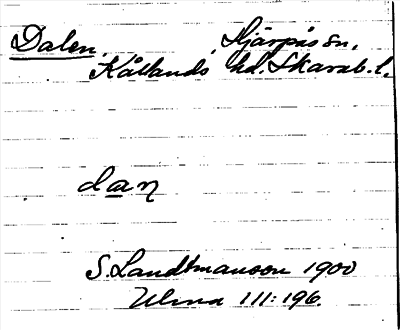 Dalen, Hjärpås sn.
Kållands hd. Skarab. l.
dan
S. Landtmanson 1900
Ulma 111:196.